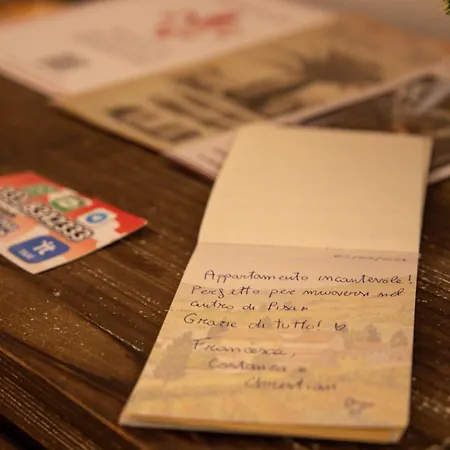 Appartamento incantevole!
Perfetto per muoversi nel
centro di Pisa
Grazie di tutto!
Francesca,
Costanza e
Christian
TAXI